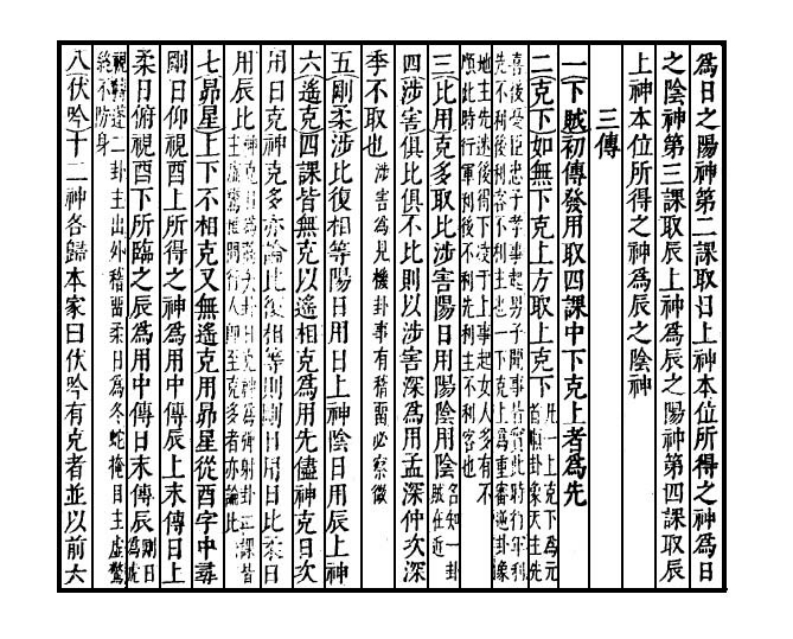 為日之陽神第二課取日上神本位所得之神為日
之陰神第三課取辰上神為辰之陽神第四課取辰
上神本位所得之神為辰之陰神
三傳
一下賊初傳發用取四課中下克上者為先
二克下如無下克上方取上克下此一上克下為元首順卦象天主先
喜後憂臣忠子孝事起男子聞事皆實此時行年利
先不利後利客不利主也一下克上為重審逆卦像
地主先迷後得下凌于上事起女人多有不
順此時行軍利後不利先利主不利客也
三比用克多取比涉害陽日用陽陰用陰名知一卦賊在近
四涉害俱比俱不比則以涉害深為用孟深仲次深
季不取也涉害為見機卦事有稽留必察微
五剛柔涉比復相等陽日用日上神陰日用辰上神
六遙克四課皆無克以遙相克為用先儘神克日次
用日克神克多亦論比復相等則剛日用日比柔日
用辰比
七昴星上下不相克又無遙克用昴星從酉字中尋
剛日仰視酉上所得之神為用中傳辰上末傳日上
柔日俯視酉下所臨之辰為用中傳日末傳辰剛日為虎
視轉蓬二卦主出外稽留柔日為冬蛇掩目主虛驚
終不防身
八伏吟十二神各歸本家曰伏吟有克者並以前六